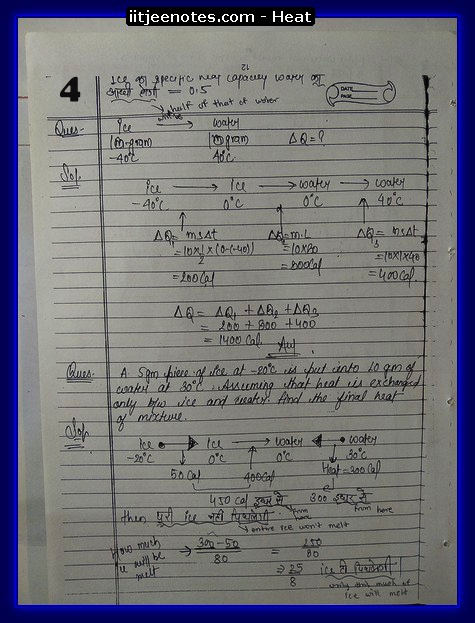 iitjeenotes.com - Heat
12
4
Ice का specific heat capacity water का
आधी होती = 0.5
DATE
PAGE
half of that of water
Ques. Ice → water
10 gram 10 gram ΔQ = ?
-40°C 40°C
Sol
Ice → Ice → water → water
-40°C 0°C 0°C 40°C
ΔQ₁ = msΔt ΔQ₂ = m.L ΔQ₃ = msΔt
= 10×1/2×(0-(-40)) = 10×80 = 10×1×40
= 200 Cal = 800 Cal = 400 Cal.
ΔQ = ΔQ₁ + ΔQ₂ + ΔQ₃
= 200 + 800 + 400
= 1400 Cal. Ans.
Ques. A 5 gm piece of ice at -20°C is put into 10 gm of
water at 30°C. Assuming that heat is exchanged
only b/w ice and water. find the final heat
of mixture.
Sol Ice Ice → water water
-20°C 0°C 0°C 30°C
50 Cal 400 Cal Heat = 300 Cal
450 Cal इधर से 300 इधर से
from here from here
then पूरी ice नहीं पिघलेगी.
entire ice won't melt
How much ice will be melt → 300-50/80 = 250/80
⇒ 25/8 ice ही पिघलेगी
only this much of
ice will melt